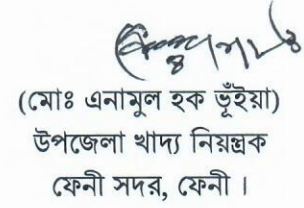 (মোঃ এনামুল হক ভূঁইয়া)
উপজেলা খাদ্য নিয়ন্ত্রক
ফেনী সদর, ফেনী ।